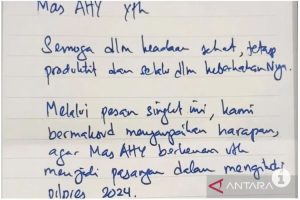 Mas AHY yth
Semoga dlm keadaan sehat, tetap
produktif dan selalu dlm keberkahanNya.
Melalui pesan singkat ini, kami
bermaksud menyampaikan harapan,
agar Mas AHY berkenan utk
menjadi pasangan dalam mengikuti
pilpres 2024.
ANTARA
1